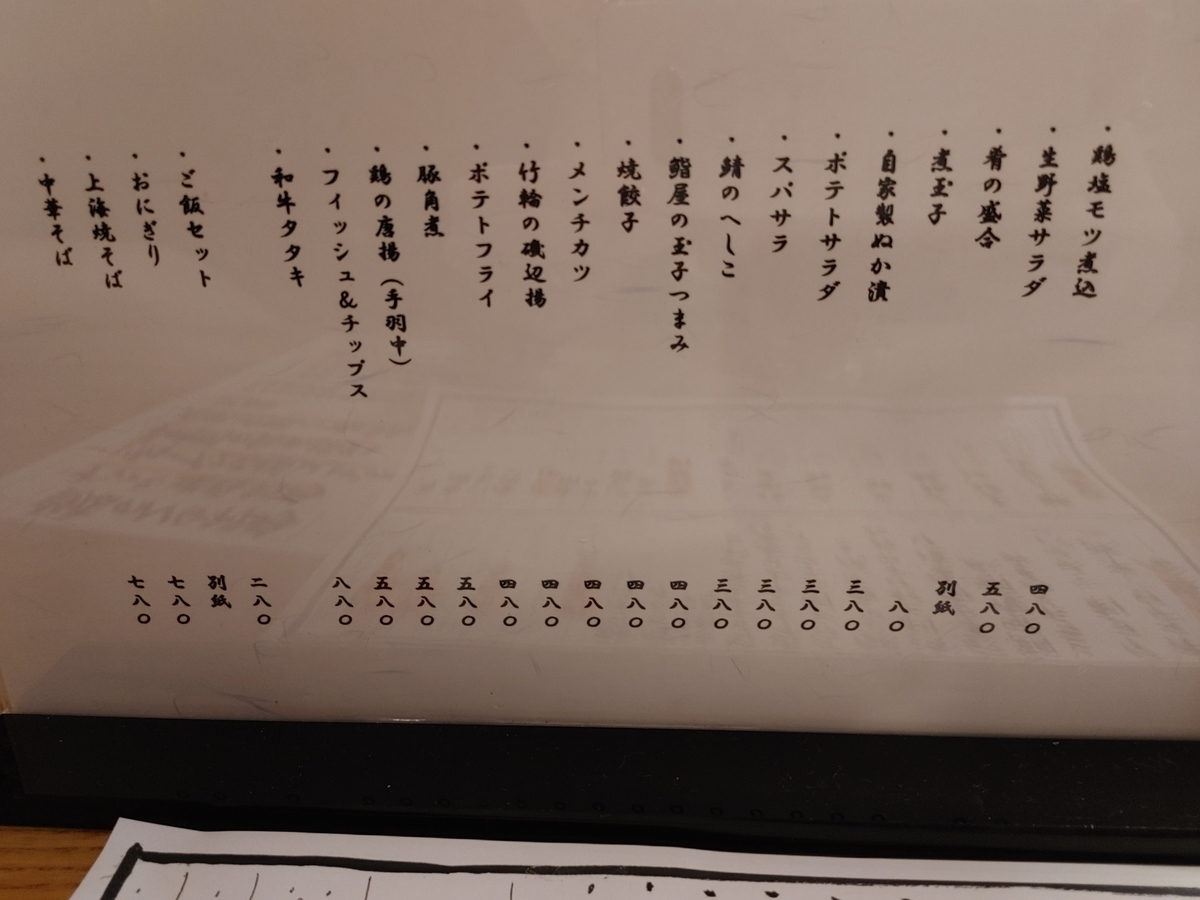 ・鶏塩モツ煮込 四八〇
・生野菜サラダ 五八〇
・肴の盛合 別紙
・煮玉子 八〇
・自家製ぬか漬 三八〇
・ポテトサラダ 三八〇
・スパサラ 三八〇
・鯖のへしこ 三八〇
・鮨屋の玉子つまみ 四八〇
・焼餃子 四八〇
・メンチカツ 四八〇
・竹輪の磯辺揚 四八〇
・ポテトフライ 四八〇
・豚角煮 五八〇
・鶏の唐揚（手羽中） 五八〇
・フィッシュ&チップス 五八〇
・和牛タタキ 八八〇
・ご飯セット 二八〇
・おにぎり 別紙
・上海焼そば 七八〇
・中華そば 七八〇